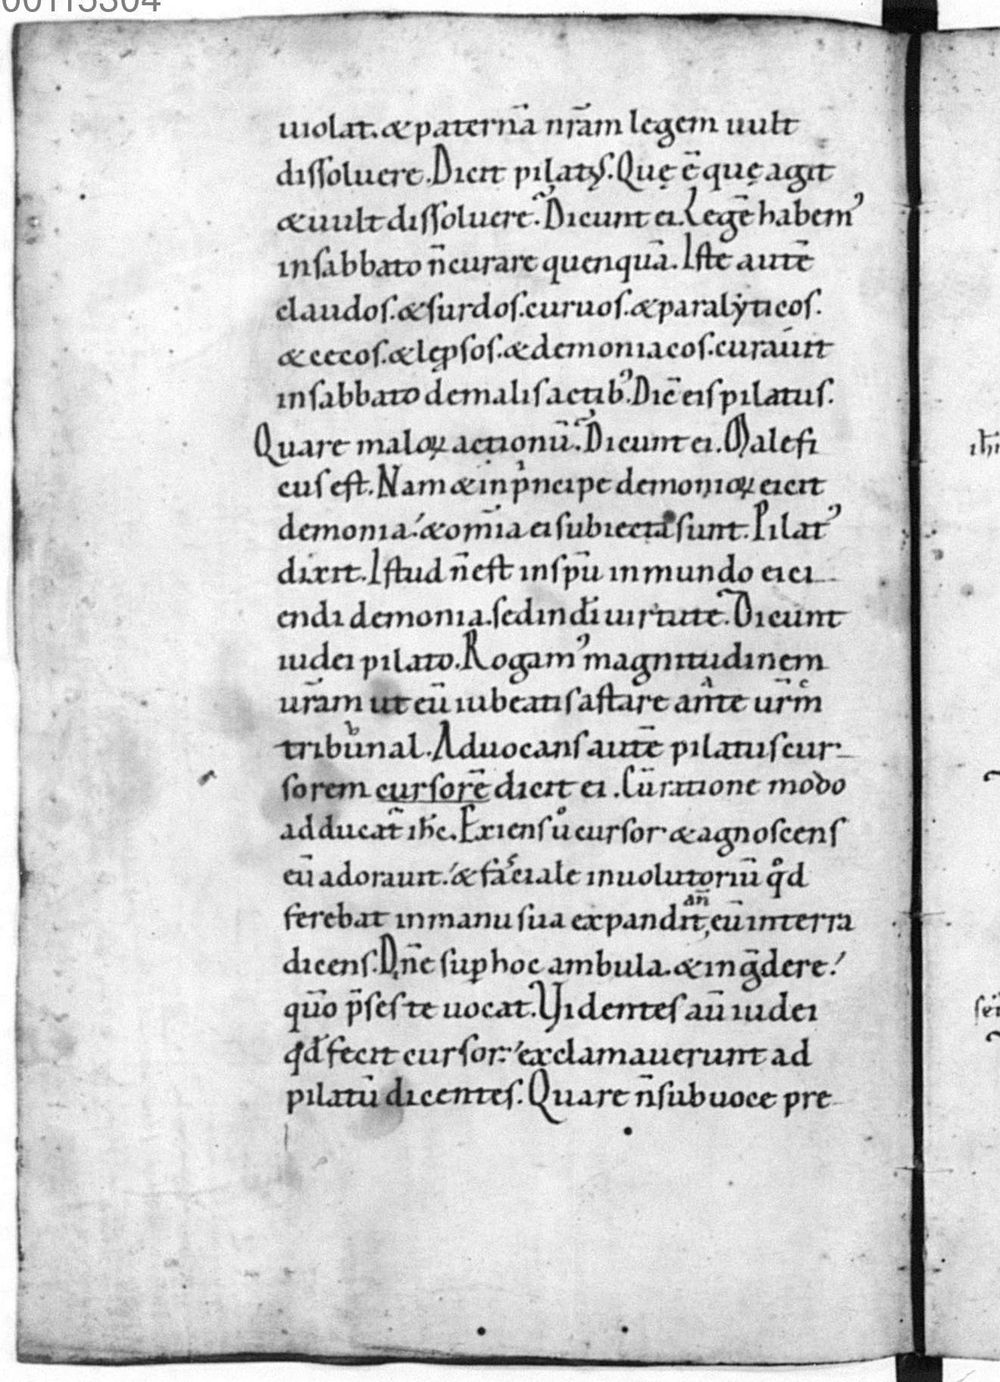 00115304
uiolat. & paternā nr̄am legem uult
dissoluere. Dicit pilatꝰ. Quę ē quę agit
& uult dissoluere? Dicunt ei. Legē habemꝰ
in sabbato n̄ curare quenquā. Iste autē
claudos. & surdos. curuos. & paralẏticos.
& cecos. & lep̱sos. & demoniacos. curauit
in sabbato de malis actibꝰ. Dic̄ eis pilatus.
Quare maloꝝ actionū? Dicunt ei. Malefi
cus est. Nam & in pͥncipe demonioꝝ eicit
demonia. & om̄ia ei subiecta sunt. Pilatꝰ
dixit. Istud n̄ est in sp̄u inmundo eici
endi demonia. sed in dī uirtute. Dicunt
iudei pilato. Rogamꝰ magnitudinem
ur̄am ut eū iubeatis astare ante ur̄m
tribunal. Aduocans autē pilatus cur-
sorem cursorē dicit ei. Cū ratione modo
adducat̄ ih̄c. Exiens uͦ cursor & agnoscens
eū adorauit. & faciale inuolutoriū qͦd
ferebat in manu sua expandit, an̄ eū in terra
dicens. Dn̄e suꝑ hoc ambula. & ingᵃdere.
qūo p̄ses te uocat. Videntes aū iudei
qd̄ fecit cursor: exclamauerunt ad
pilatū dicentes. Quare n̄ sub uoce pre